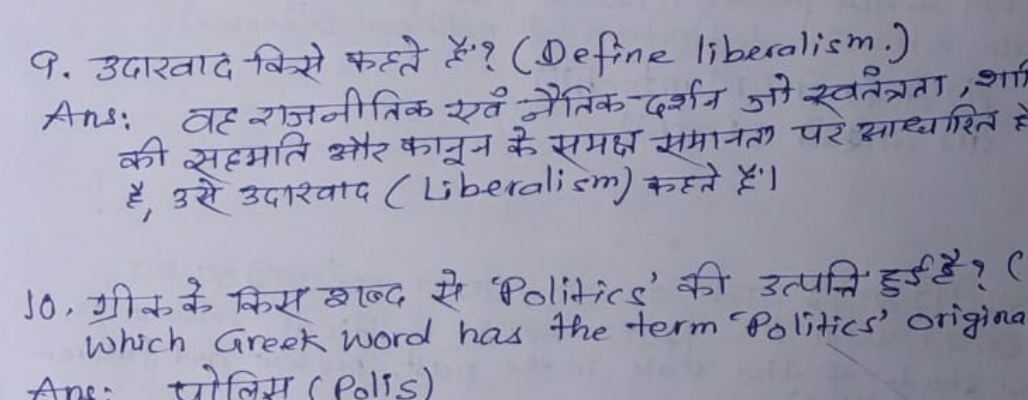 9. उदारवाद किसे कहते हैं? (Define liberalism.)
Ans: वह राजनीतिक एवं नैतिक दर्शन जो स्वतंत्रता,
की सहमति और कानून के समक्ष समानता पर आधारित
है, उसे उदारवाद (Liberalism) कहते हैं।
10. ग्रीक के किस शब्द से 'Politics' की उत्पत्ति हुई है? (
which Greek word has the term 'Politics'
Ans: पोलिस (Polis)